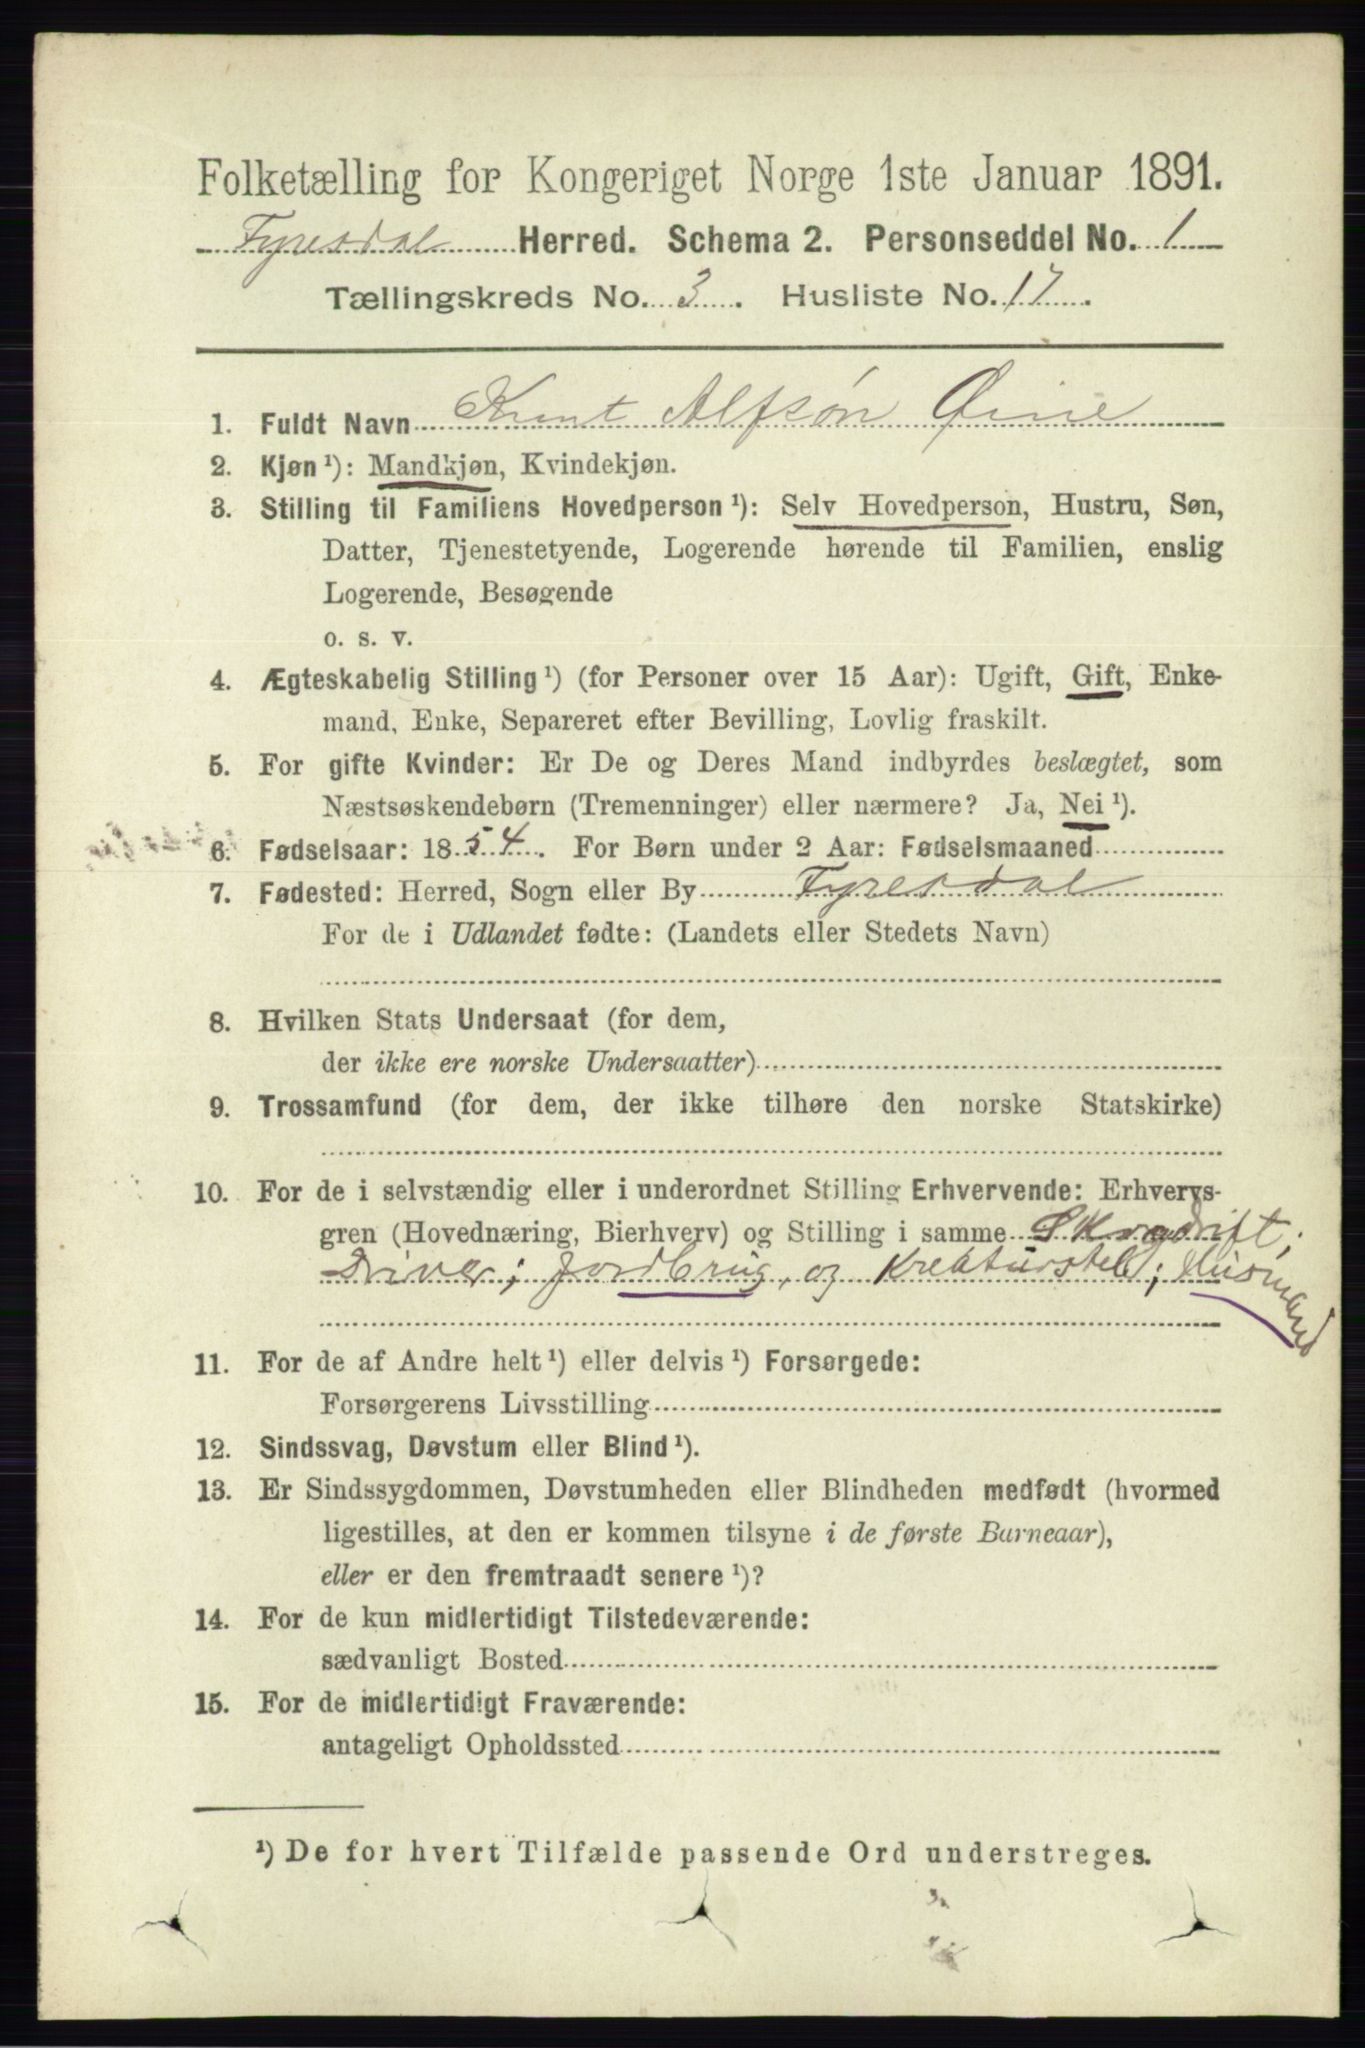 Folketælling for Kongeriget Norge 1ste Januar 1891.
Fyresdal Herred. Schema 2. Personseddel No. 1
Tællingskreds No. 3. Husliste No. 17.
1. Fuldt Navn Knut Alfsøn Øine
2. Kjøn ¹): Mandkjøn, Kvindekjøn.
3. Stilling til Familiens Hovedperson ¹): Selv Hovedperson, Hustru, Søn,
Datter, Tjenestetyende, Logerende hørende til Familien, enslig
Logerende, Besøgende
o. s. v.
4. Ægteskabelig Stilling ¹) (for Personer over 15 Aar): Ugift, Gift, Enke-
mand, Enke, Separeret efter Bevilling, Lovlig fraskilt.
5. For gifte Kvinder: Er De og Deres Mand indbyrdes beslægtet, som
Næstsøskendebørn (Tremenninger) eller nærmere? Ja, Nei ¹).
6. Fødselsaar: 1854. For Børn under 2 Aar: Fødselsmaaned
7. Fødested: Herred, Sogn eller By Fyresdal
For de i Udlandet fødte: (Landets eller Stedets Navn)
8. Hvilken Stats Undersaat (for dem,
der ikke ere norske Undersaatter)
9. Trossamfund (for dem, der ikke tilhøre den norske Statskirke)
10. For de i selvstændig eller i underordnet Stilling Erhvervende: Erhvervs-
gren (Hovednæring, Bierhverv) og Stilling i samme Skovdrift,
Driver; Jordbrug, og Kreaturstel; Husmand
11. For de af Andre helt ¹) eller delvis ¹) Forsørgede:
Forsørgerens Livsstilling
12. Sindssvag, Døvstum eller Blind ¹).
13. Er Sindssygdommen, Døvstumheden eller Blindheden medfødt (hvormed
ligestilles, at den er kommen tilsyne i de første Barneaar),
eller er den fremtraadt senere ¹)?
14. For de kun midlertidigt Tilstedeværende:
sædvanligt Bosted
15. For de midlertidigt Fraværende:
antageligt Opholdssted
¹) De for hvert Tilfælde passende Ord understreges.